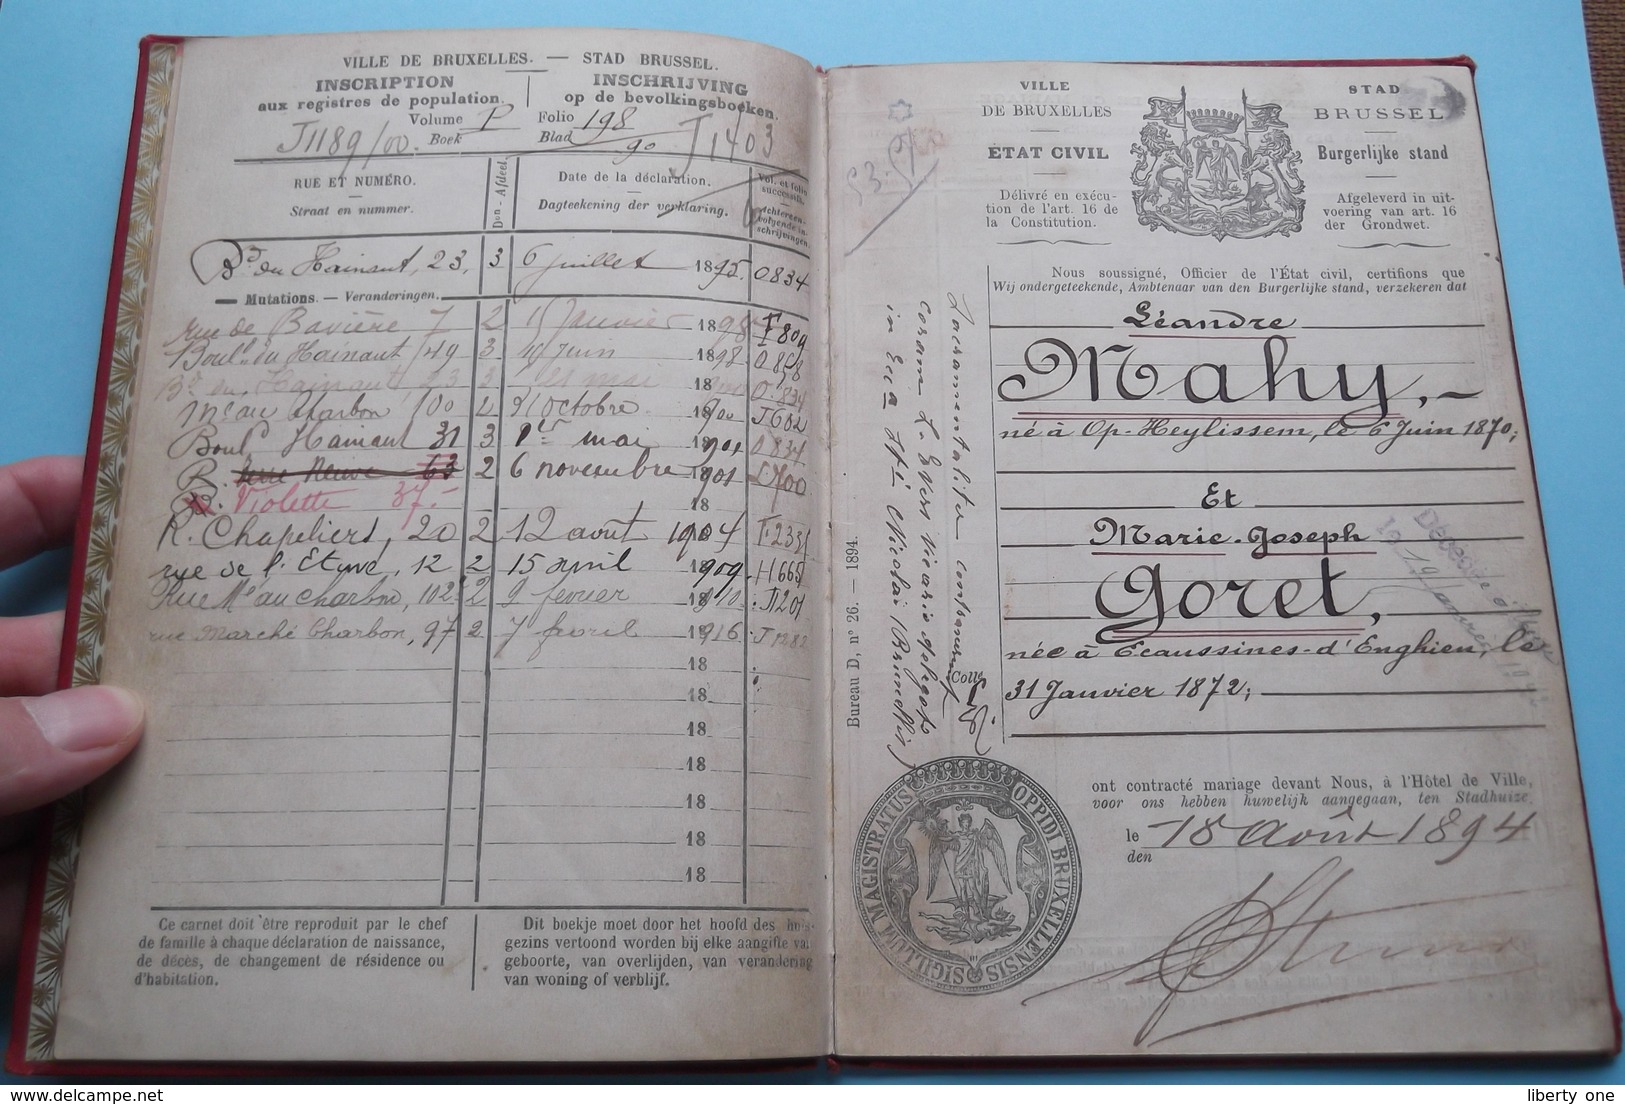 VILLE DE BRUXELLES. — STAD BRUSSEL.
INSCRIPTION
aux registres de population.
INSCHRIJVING
op de bevolkingsboeken.
Volume P Folio 198
Boek Blad 90
J1189/00. J1403
RUE ET NUMÉRO.
Straat en nummer.
Don - Afdeel.
Date de la déclaration.
Dagteekening der verklaring.
Vol. et folio successifs.
Achtereenvolgende inschrijvingen.
Bd du Hainaut, 23, 3 6 juillet 1895. 0834
— Mutations. — Veranderingen.
rue de Bavière 7 2 15 Janvier 1898 I 809
Boul. du Hainaut 49 3 Juin 1898 0858
Bd du Hainaut 23 3 21 mai 18 0.834
Mé au Charbon 100 2 Octobre 1900 J682
Boul. Hainaut 31 3 1er mai 1901 0834
R. Terre Neuve 63 2 6 novembre 1901 1700
R. Violette 37.- 18
R. Chapeliers, 20 2 12 août 1904 I.2331
rue de l'Etuve, 12 2 15 avril 1909 H665
Rue Mé au Charbon, 102 2 9 fevrier 1910 J1201
rue Marché Charbon, 97 2 7 1916 J1282
18
18
18
18
18
18
18
Ce carnet doit être reproduit par le chef
de famille à chaque déclaration de naissance,
de décès, de changement de résidence ou
d'habitation.
Dit boekje moet door het hoofd des huis-
gezins vertoond worden bij elke aangifte van
geboorte, van overlijden, van verandering
van woning of verblijf.
VILLE
DE BRUXELLES
ÉTAT CIVIL
Délivré en exécu-
tion de l'art. 16 de
la Constitution.
STAD
BRUSSEL
Burgerlijke stand
Afgeleverd in uit-
voering van art. 16
der Grondwet.
Nous soussigné, Officier de l'État civil, certifions que
Wij ondergeteekende, Ambtenaar van den Burgerlijke stand, verzekeren dat
Léandre
Mahy,
né à Op-Heylissem, le 6 Juin 1870;
Et
Marie-Joseph
Goret,
née à Ecaussines-d'Enghien, le
31 Janvier 1872;
ont contracté mariage devant Nous, à l'Hôtel de Ville,
voor ons hebben huwelijk aangegaan, ten Stadhuize,
le 18 Août 1894
den
Bureau D, nº 26. — 1894.
Colla
coram L. Evers vicario
SIGILLUM MAGISTRATUS OPPIDI BRUXELLENSIS
liberty one